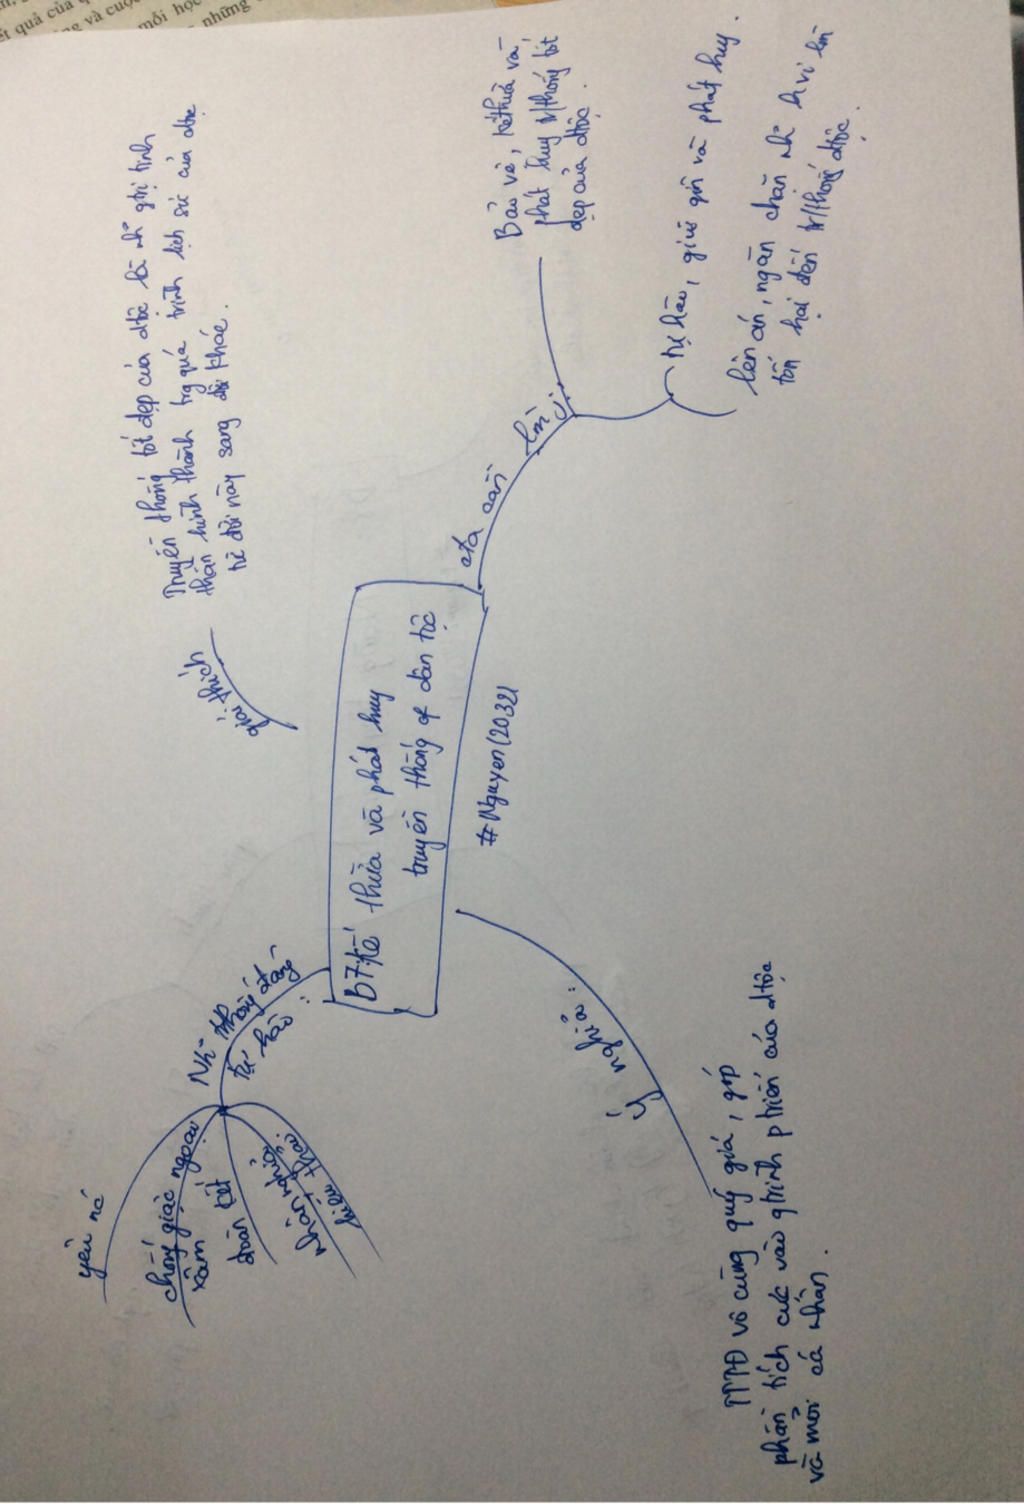 B7: Kế thừa và phát huy
truyền thống of dân tộc
#Nguyen(2032)
giải thích
Truyền thống tốt đẹp của dtộc là n~ gtrị tinh
thần hình thành trg quá trình lịch sử của dtộc
từ đời này sang đời khác.
cta cần làm j:
Bảo vệ, kế thừa và
phát huy tr/thống tốt
đẹp của dtộc.
tự hào, giữ gìn và phát huy.
lên án, ngăn chặn n~ h.vi làm
tổn hại đến tr/thống dtộc.
Ý nghĩa:
TTTĐ vô cùng quý giá, góp
phần tích cực vào qtrình ptriển của dtộc
và mỗi cá nhân.
tự hào:
yêu nc
chống giặc ngoại
xâm
đoàn kết
nhân nghĩa
hiếu thảo
ết quả của
ng và cuộc
mỗi học
những